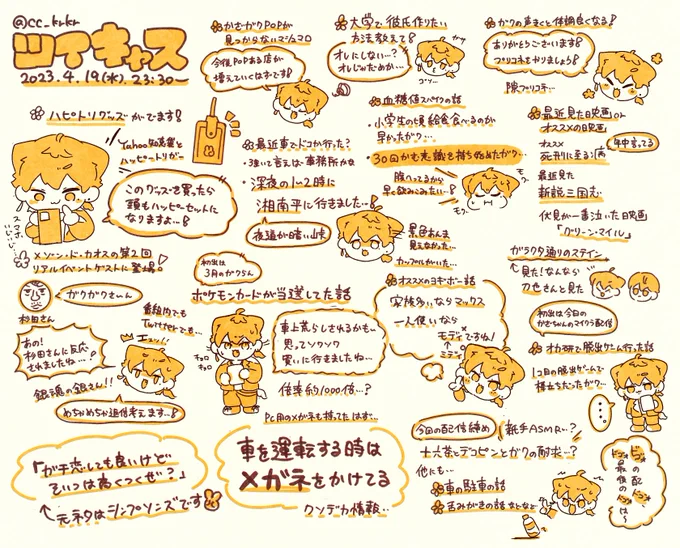 @cc_krkr
ツイキャス
2023.4.19(水)、23:30〜
ハピトリグッズがでます!
Yahoo知恵袋と
ハッピートリガー
このグッズを買ったら
頭もハッピーセットに
なりますよ…!
スマホ
いじいじ
×ゾン・ド・カオスの第2回
リアルイベントゲストに登場!
杉田さん
ガクガクさぁん
あの!
杉田さんに反応
されましたね…
番組内でも
Twitterでも…
エッ!!
銀魂の銀さん!!
めちゃめちゃ返信考えます…!
「ガチ恋しても良いけど
そいつは高くつくぜ?」
元ネタはシンプソンズです
かさガクPOPが
見つからないマシュマロ
今後POPある店が
増えていくはずです!
最近車でドコか行った?
・強いて言えば事務所かな
・深夜の1〜2時に
湘南平に行きました…!
夜道が暗い山
景色あんま
見えなかった…
カップルがいた…
初出は
3月のかつらん
ポケモンカードが当選してた話
キョロ
キョロ
車上荒らしされるかも…
思ってソワソワ
買いに行きましたね…
倍率約1000倍…?
PC用のメガネも捨ててはず…
車を運転する時は
メガネをかけてる
クソデカ情報…
大学で彼氏作りたい
方法教えて!
オレにしない…?
オレじゃだめか…
血糖値スパイクの話
・小学生の頃給食食べるのが
早かったガク…
・30回かむ意識を持ち始めたガク…
腹へってるから
早く飲みこみたい…!
モグ
モグ
オススメのヨギボー話
家族多いならマックス
一人使いなら
モディですね!
ミディ
今回の配信締め
・新手ASMR…?
十六茶とデコピンとガクの耐求…?
他にも…
車の駐車の話
歯みがきの話などなど
ガクの声きくと体調良くなる!
ありがとうございます!
プリコネをやりましょう!
隙プリコネ…
最近見た映画or
オススメの映画
オススメ
死刑に至る病
毎年言ってる
最近見た
新説三国志
伏見が一番泣いた映画
「グリーン・マイル」
ガラクタ通りのステイン
見た!なんなら
刀也さんと見た
初出は今日の
かざちゃんのマイクラ配信
オカ研で脱出ゲーム行った話
1コ目の脱出ゲームで
棒立ちだったガク…